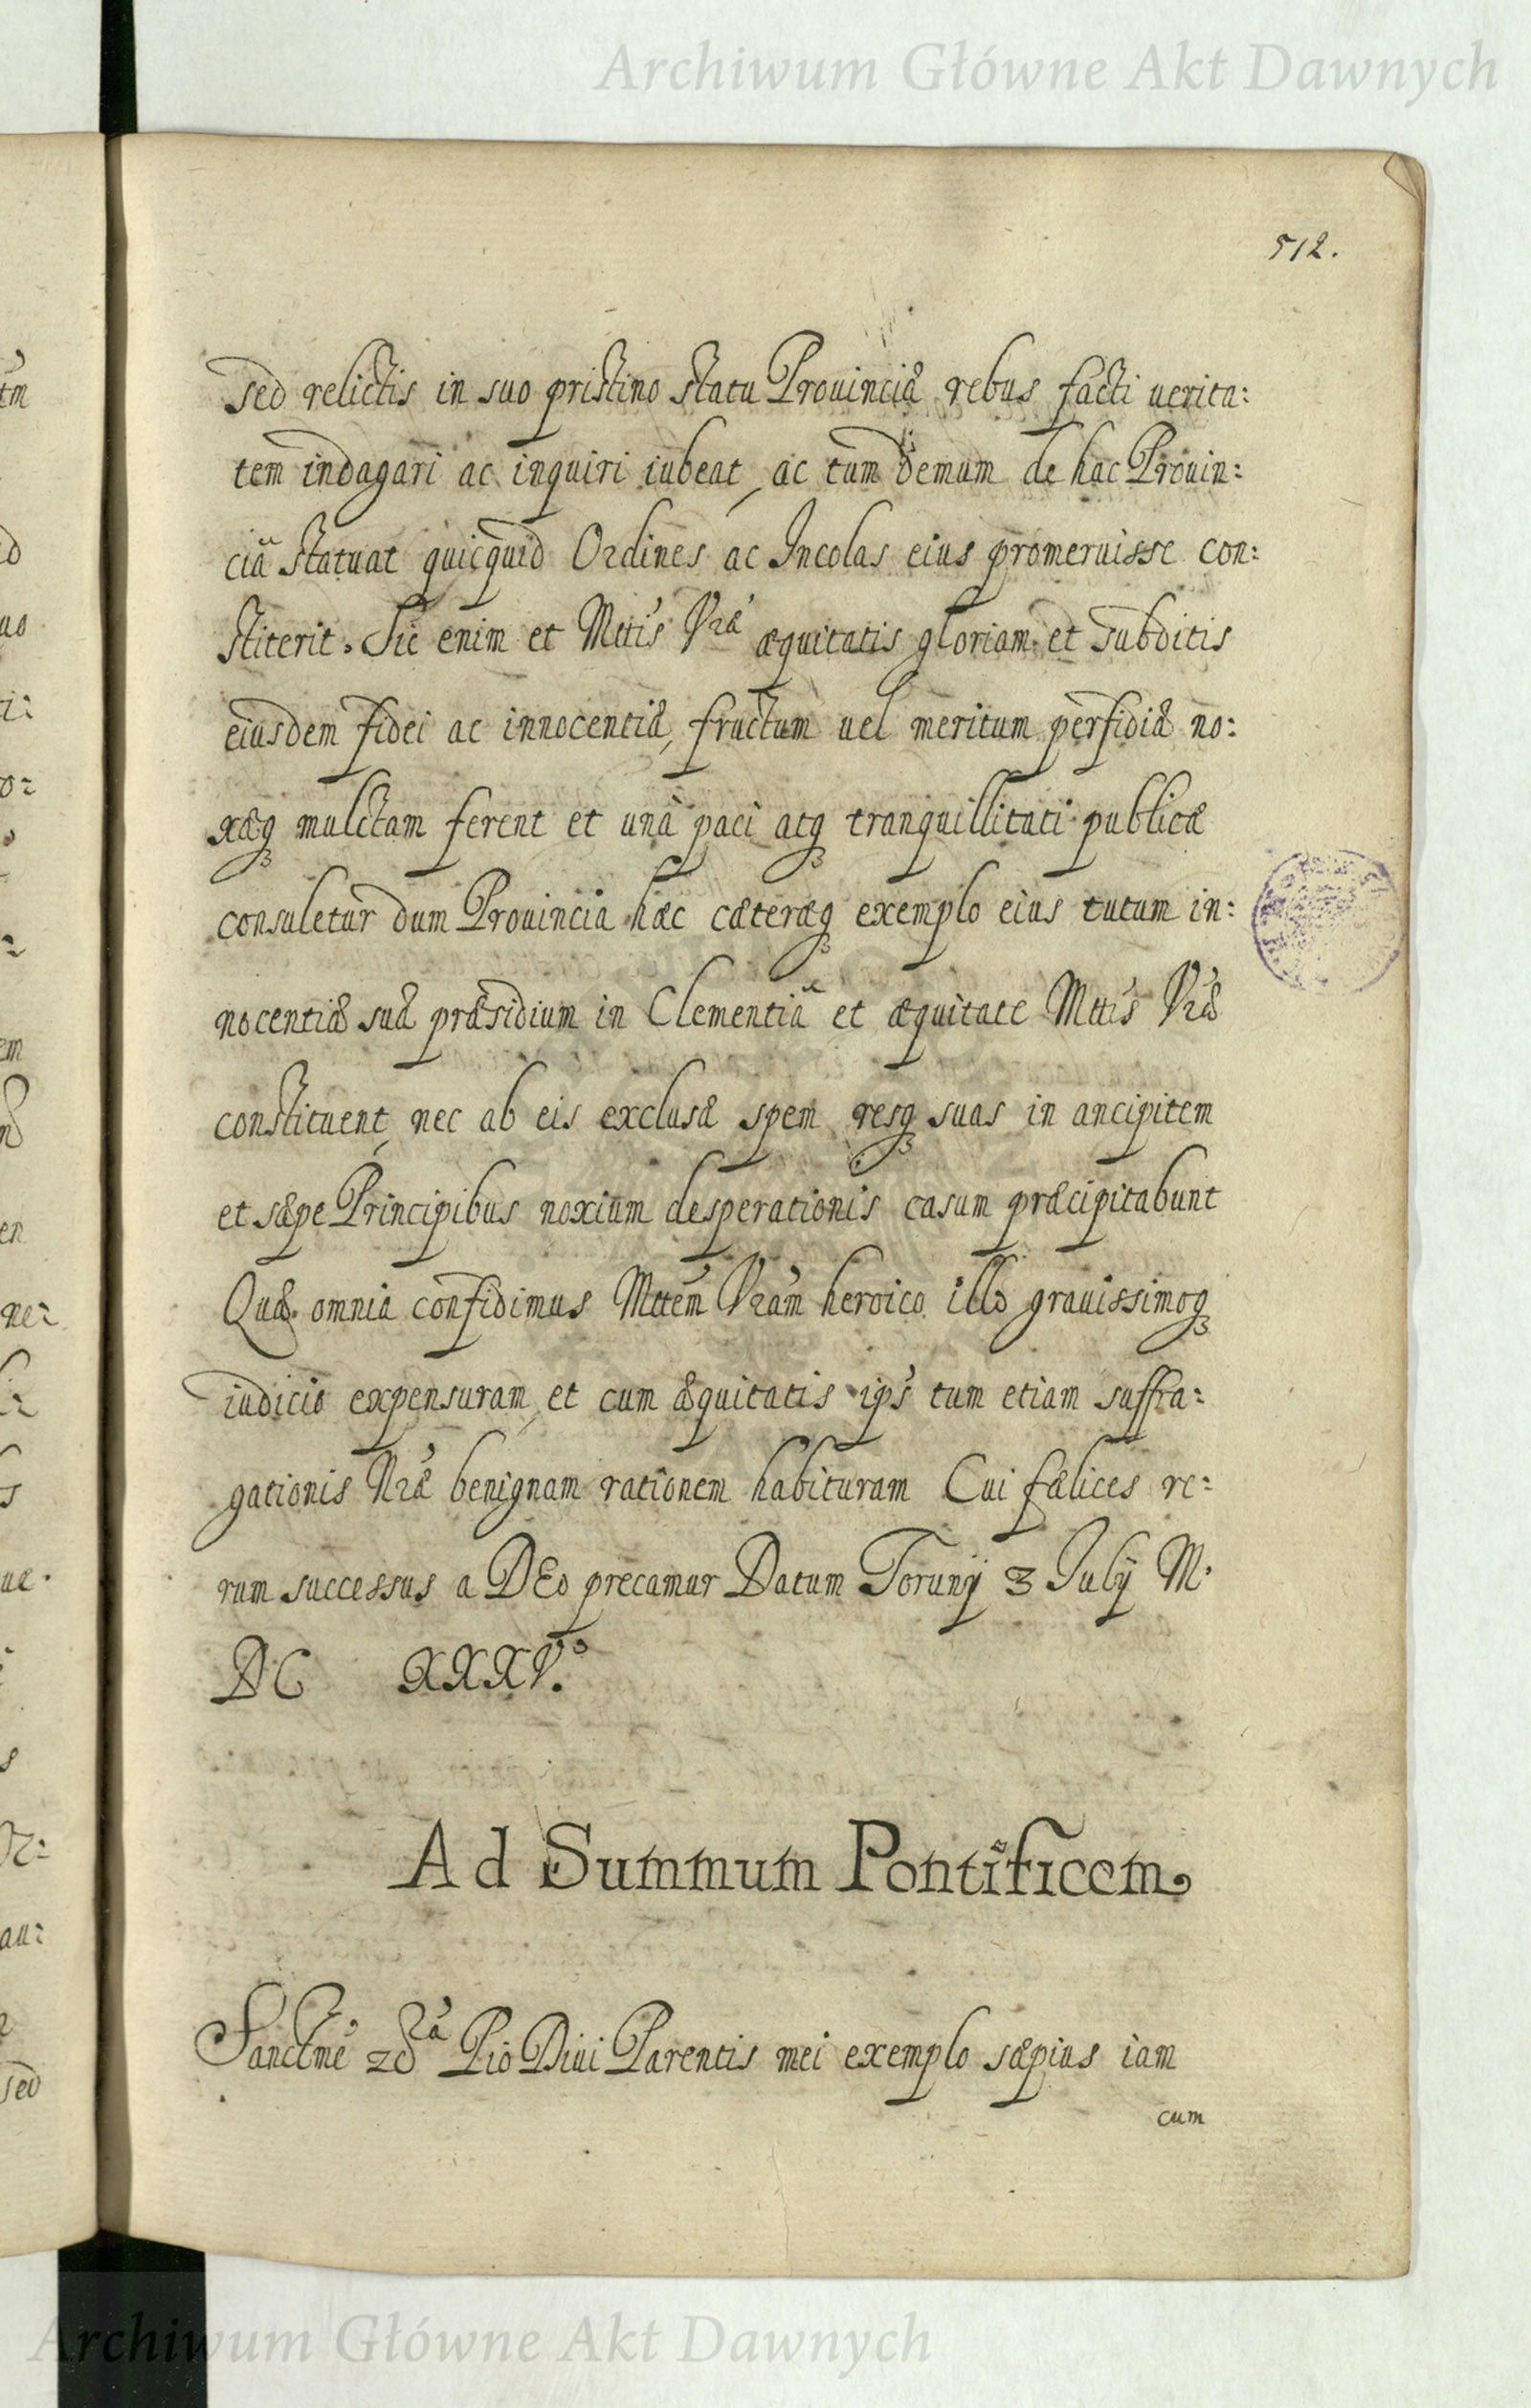 Archiwum Główne Akt Dawnych
512.
sed relictis in suo pristino statu Prouinciæ rebus facti uerita:
tem indagari ac inquiri iubeat, ac tum demum de hac Prouin:
ciâ statuat quicquid Ordines ac Incolas eius promeruisse con:
stiterit. Sic enim et Mttis Vræ æquitatis gloriam et subditis
eiusdem fidei ac innocentiæ, fructum uel meritum perfidiæ no:
xæq mulctam ferent et unà paci atq tranquillitati publicæ
consuletur dum Prouincia hæc cæteræq exemplo eius tutum in:
nocentiæ suæ præsidium in Clementiâ et æquitate Mttis Vræ
constituent, nec ab eis exclusæ spem resq suas in ancipitem
et sæpe Principibus noxium desperationis casum præcipitabunt
Quæ omnia confidimus Mttem Vram heroico illo grauissimoq
iudicio expensuram, et cum æquitatis ips tum etiam suffra:
gationis Nræ benignam rationem habituram Cui fælices re:
rum successus a DEo precamur Datum Torunij 3 Julij M.
DC XXXV.o
Ad Summum Pontificem
Sanctme Pio Diui Parentis mei exemplo sæpius iam
cum
Archiwum Główne Akt Dawnych